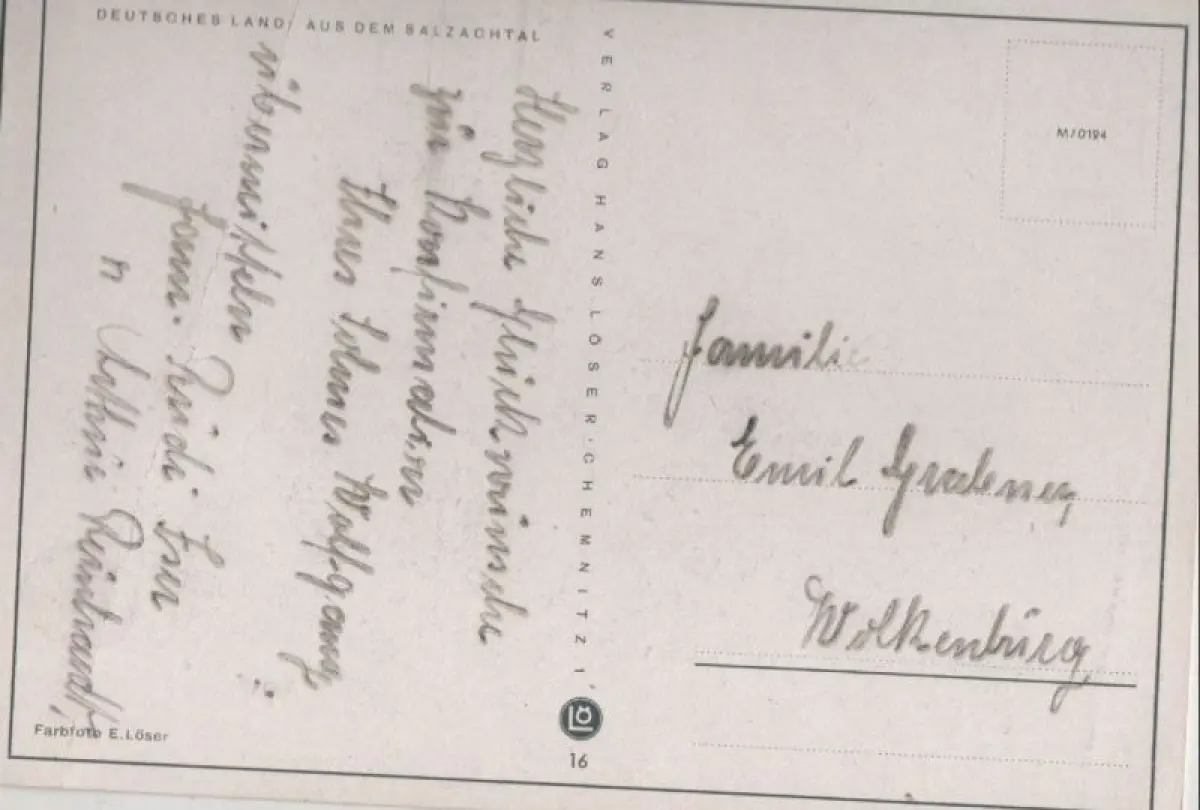 DEUTSCHES LAND: AUS DEM SALZACHTAL
Herzliche Glückwünsche
zur Konfirmation
Ihres Sohnes Wolfgang
übermitteln
Fam.
u.
VERLAG HANS LÖSER · CHEMNITZ 1
LÖ
16
Farbfoto E.Löser
M/0194
Familie
Emil
Wolkenburg